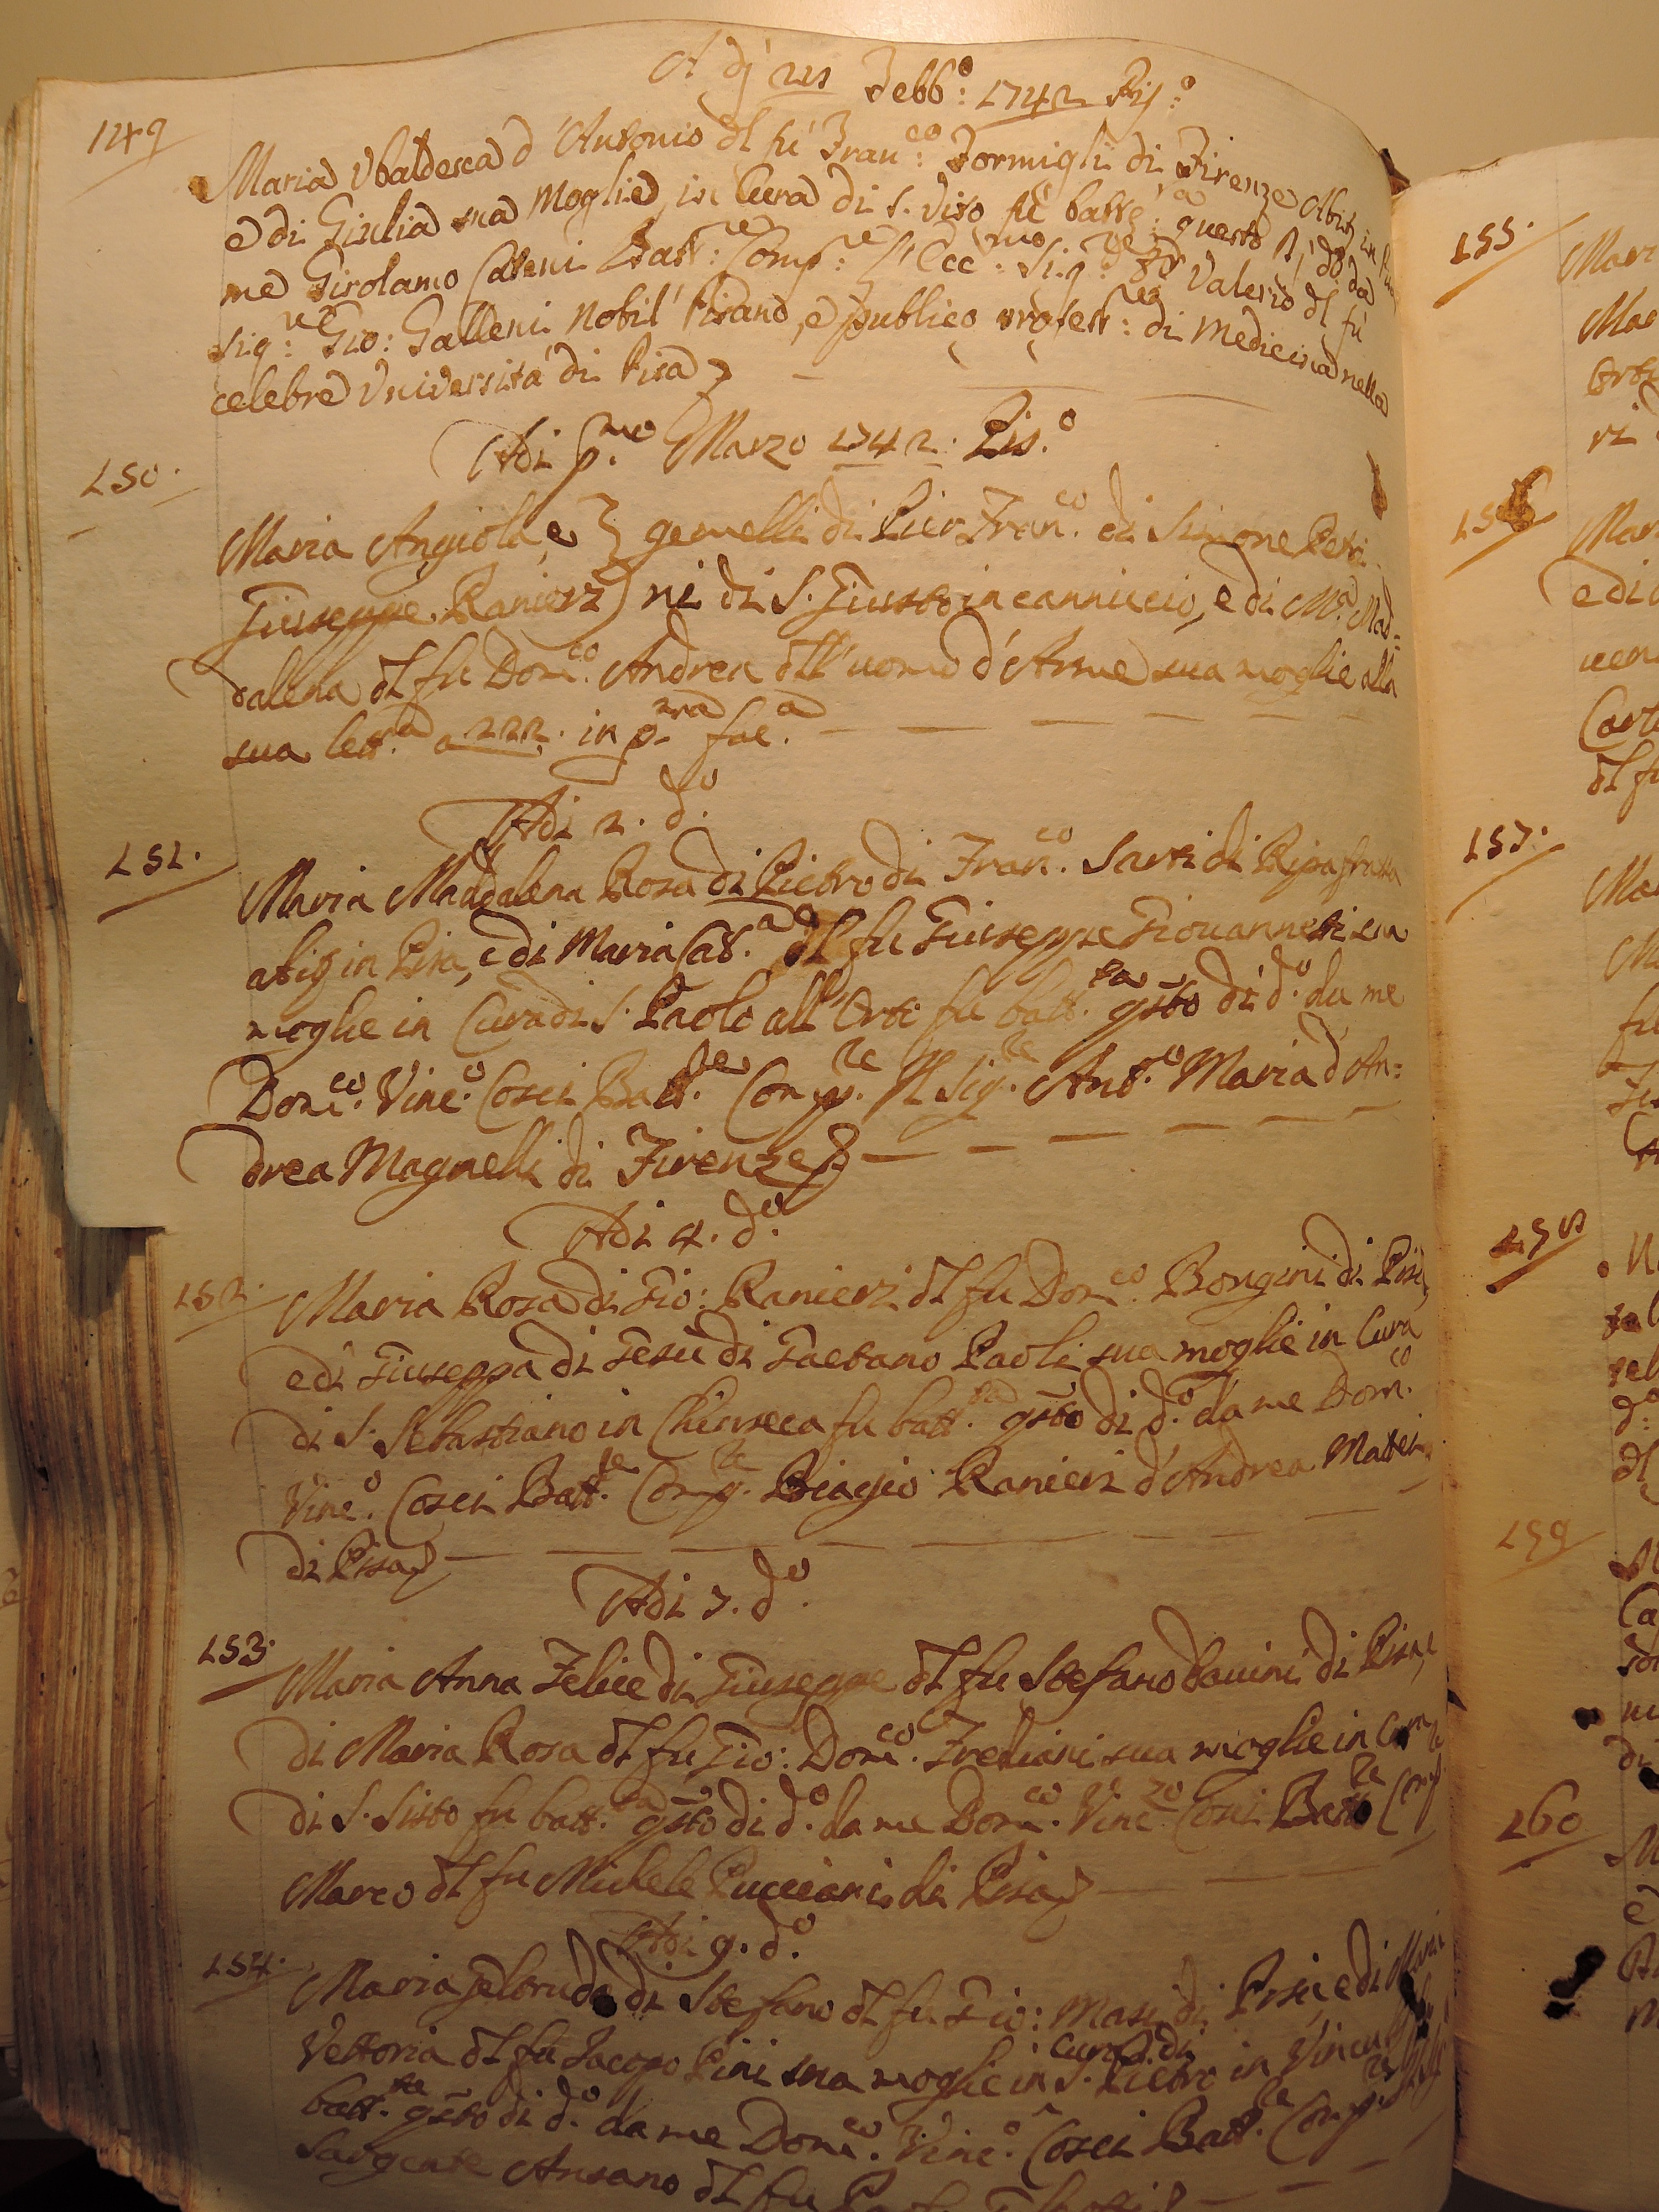 A dj 28 Febb.o: 1742 Pis.o
149
Maria Vbaldesca d'Antonio dl fu Fran.co: Formigli di Firenze Abit.e in Pisa
e di Giulia sua Moglie in Cura di S. Vito fu batt.ta: questo dì d.o da
me Girolamo Cateni Batt.re: Comp.re: l'Ecc.mo: Sig.re: D.r Valerio dl fu
Sig.re: Gio: Galleni Nobil' Pisano, e publico profess.re: di Medicina nella
celebre Vniversità di Pisa
Adi p.mo Marzo 1742. Pis.o
150.
Maria Angiola, e } gemelli di Pier Fran.co di Simone Petri-
Giuseppe Ranieri } ni di S. Giusto in canniccio, e di M.a Mad=
dalena dl fu Dom.co Andrea dll'uomo d'Arme sua moglie alla
sua lett.a a 222. in p.ma fac.a
Adi 2. d.o
151.
Maria Maddalena Rosa di Pietro di Fran.co Sarti di Ripafratta
abit in Pisa, e di Maria Cat.a dl fu Giuseppe Giovannetti sua
moglie in Cura di S. Paolo all'Orto fu batt.ta qsto dì d.o da me
Dom.co Vinc.o Cosci Batt.re Comp.re Il Sig.re Ant.o Maria d'An=
drea Magnelli di Firenze
Adi 4. d.o
152.
Maria Rosa di Gio: Ranieri dl fu Dom.co Bongini di Pisa,
e di Giuseppa di Gesù di Gaetano Paoli sua moglie in Cura
di S. Sebastiano in Chinseca fu batt.ta qsto dì d.o da me Dom.co
Vinc.o Cosci Batt.re Comp.re Biagio Ranieri d'Andrea Mattei
di Pisa
Adi 7. d.o
153.
Maria Anna Felice di Giuseppe dl fu Stefano Dauini di Pisa, e
di Maria Rosa dl fu Gio: Dom.co Frediani sua moglie in Cura
di S. Sisto fu batt.ta qsto dì d.o da me Dom.co Vinc.zo Cosci Batt.re Comp.
Marco dl fu Michele Pucciani di Pisa
Adi 9. d.o
154.
Maria Geltruda di Stefano dl fu Gio: Masi di Pisa, e di Maria
Vettoria dl fu Jacopo Pini sua moglie in Cura di S. Pietro in Vincu
batt.ta qsto dì d.o da me Dom.co Vinc.o Cosci Batt.re Comp.re
Sargente Ansano dl fu
155.
Mari
Mad
Orto
ri
156
Mar
e di
uen
Cart
dl fu
157.
Ma
M
fu
158
159
160